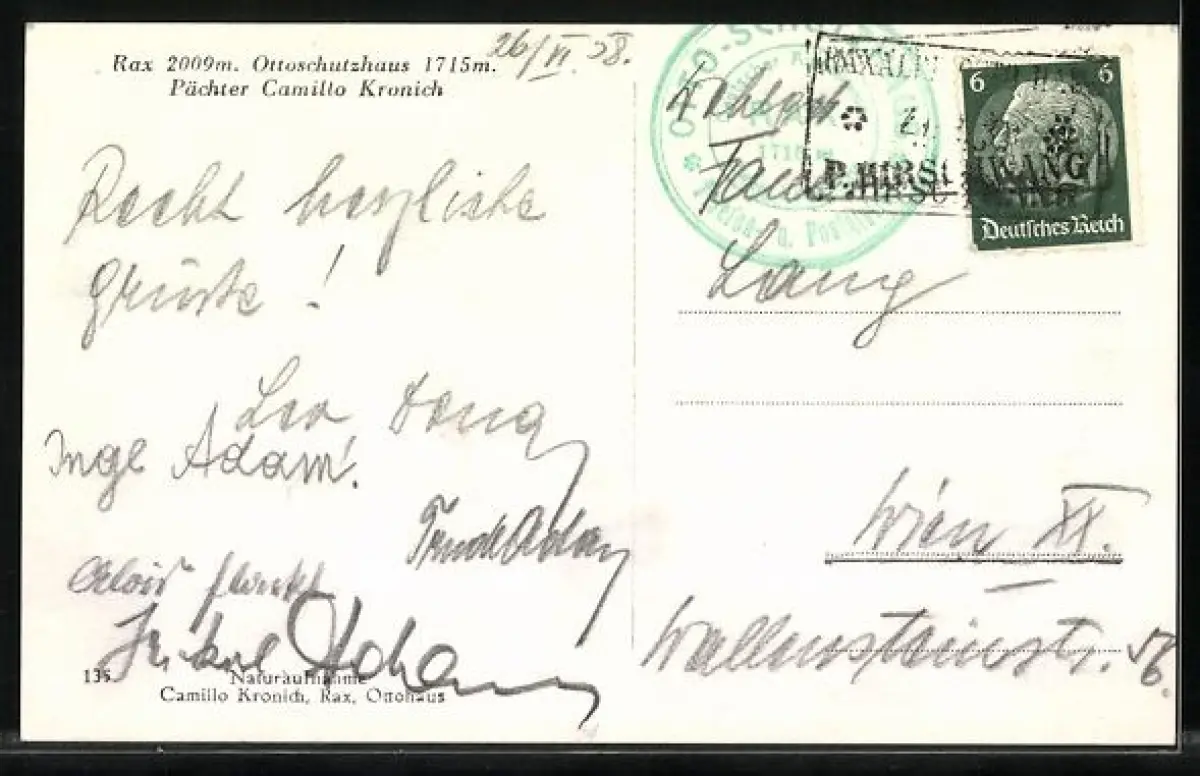 Rax 2009m. Ottoschutzhaus 1715m.
Pächter Camillo Kronich
26/VI.38.
Recht herzliche
Grüße!
Leo Lang
Inge Adam.
Trude Adam
Alois
Adam
135
Naturaufnahme
Camillo Kronich, Rax, Ottohaus
OTTO-SCHUTZHAUS
1715 m
P. HIRSCHWANG
6 6
Deutsches Reich
Familie
Lang
Wien XX.
Wallensteinstr. 56.